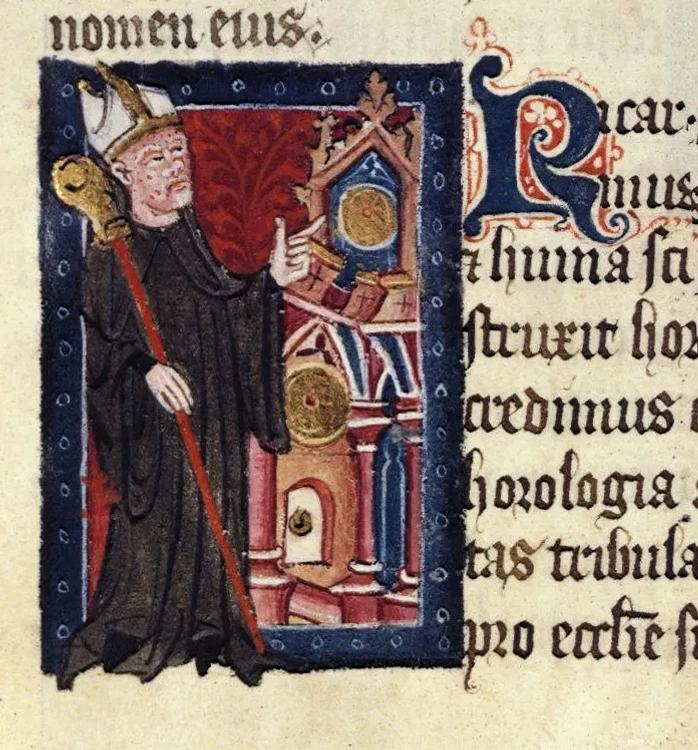 nomen eius.
Ricar
mus
⁊ huma sci
struxit hor
credimus
horologia
tas tribula
pro ecclīe